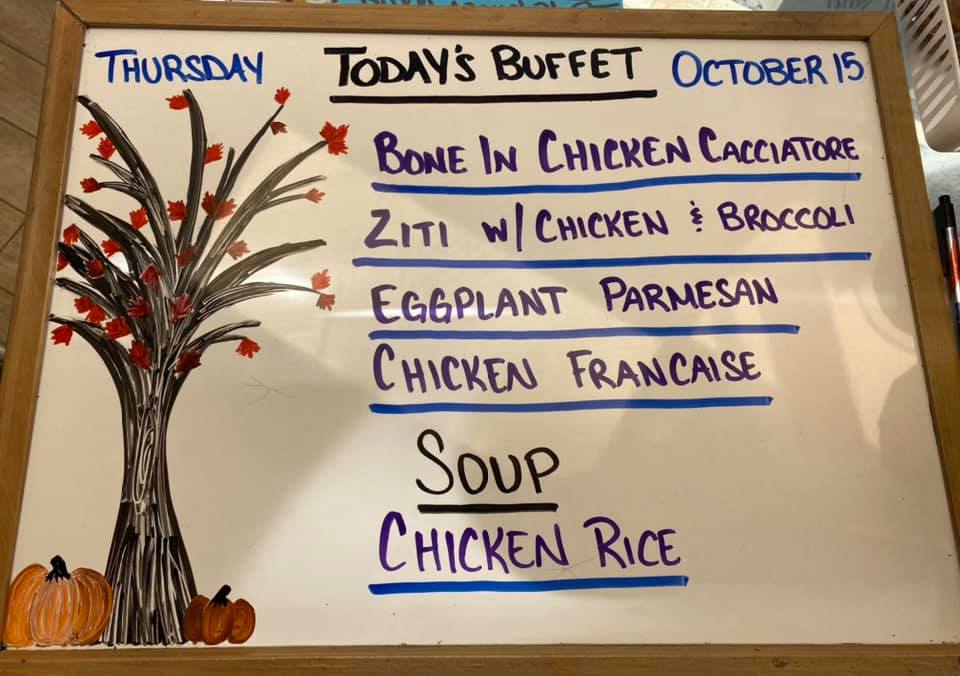 THURSDAY TODAY'S BUFFET OCTOBER 15
BONE IN CHICKEN CACCIATORE
ZITI W/ CHICKEN & BROCCOLI
EGGPLANT PARMESAN
CHICKEN FRANCAISE
SOUP
CHICKEN RICE